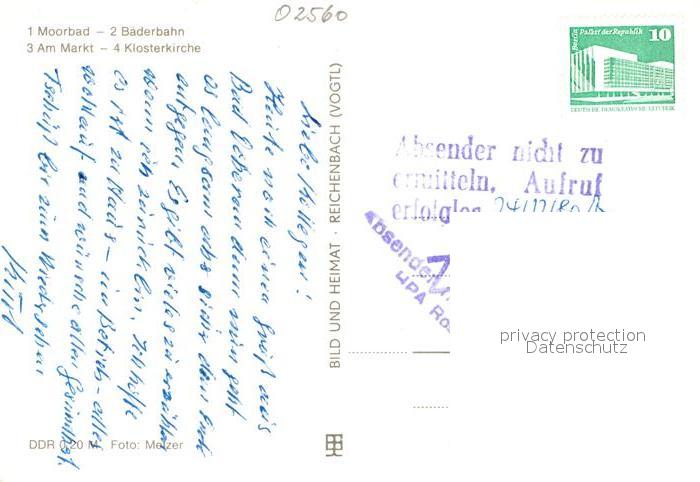 02560
1 Moorbad – 2 Bäderbahn
3 Am Markt – 4 Klosterkirche
Liebe Kollegen!
Heute noch einen Gruß aus
Bad Doberan denn nun geht
es langsam aber sicher dem Ende
entgegen. Es gibt vieles zu erzählen
wenn ich zurück bin. Ich hoffe
es ist zu Haus – im Betrieb – alles
wohlauf und wünsche allen Gesundheit.
Tschüß bis zum Wiedersehen
DDR 0,20 M, Foto: Melzer
BILD UND HEIMAT · REICHENBACH (VOGTL)
Berlin Palast der Republik 10
DEUTSCHE DEMOKRATISCHE REPUBLIK
Absender nicht zu
ermitteln. Aufruf
erfolglos
Absender
HPA Ro
privacy protection
Datenschutz